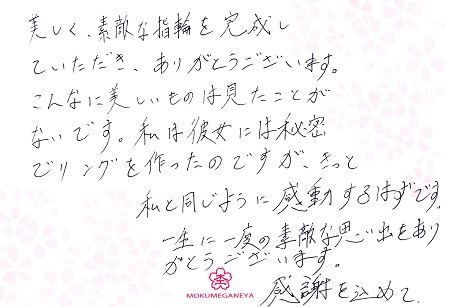 美しく、素敵な指輪を完成し
ていただき、ありがとうございます。
こんなに美しいものは見たことが
ないです。私は彼女には秘密
でリングを作ったのですが、きっと
私と同じように感動するはずです。
一生に一度の素敵な思い出をあり
がとうございます。
感謝を込めて、
MOKUMEGANEYA